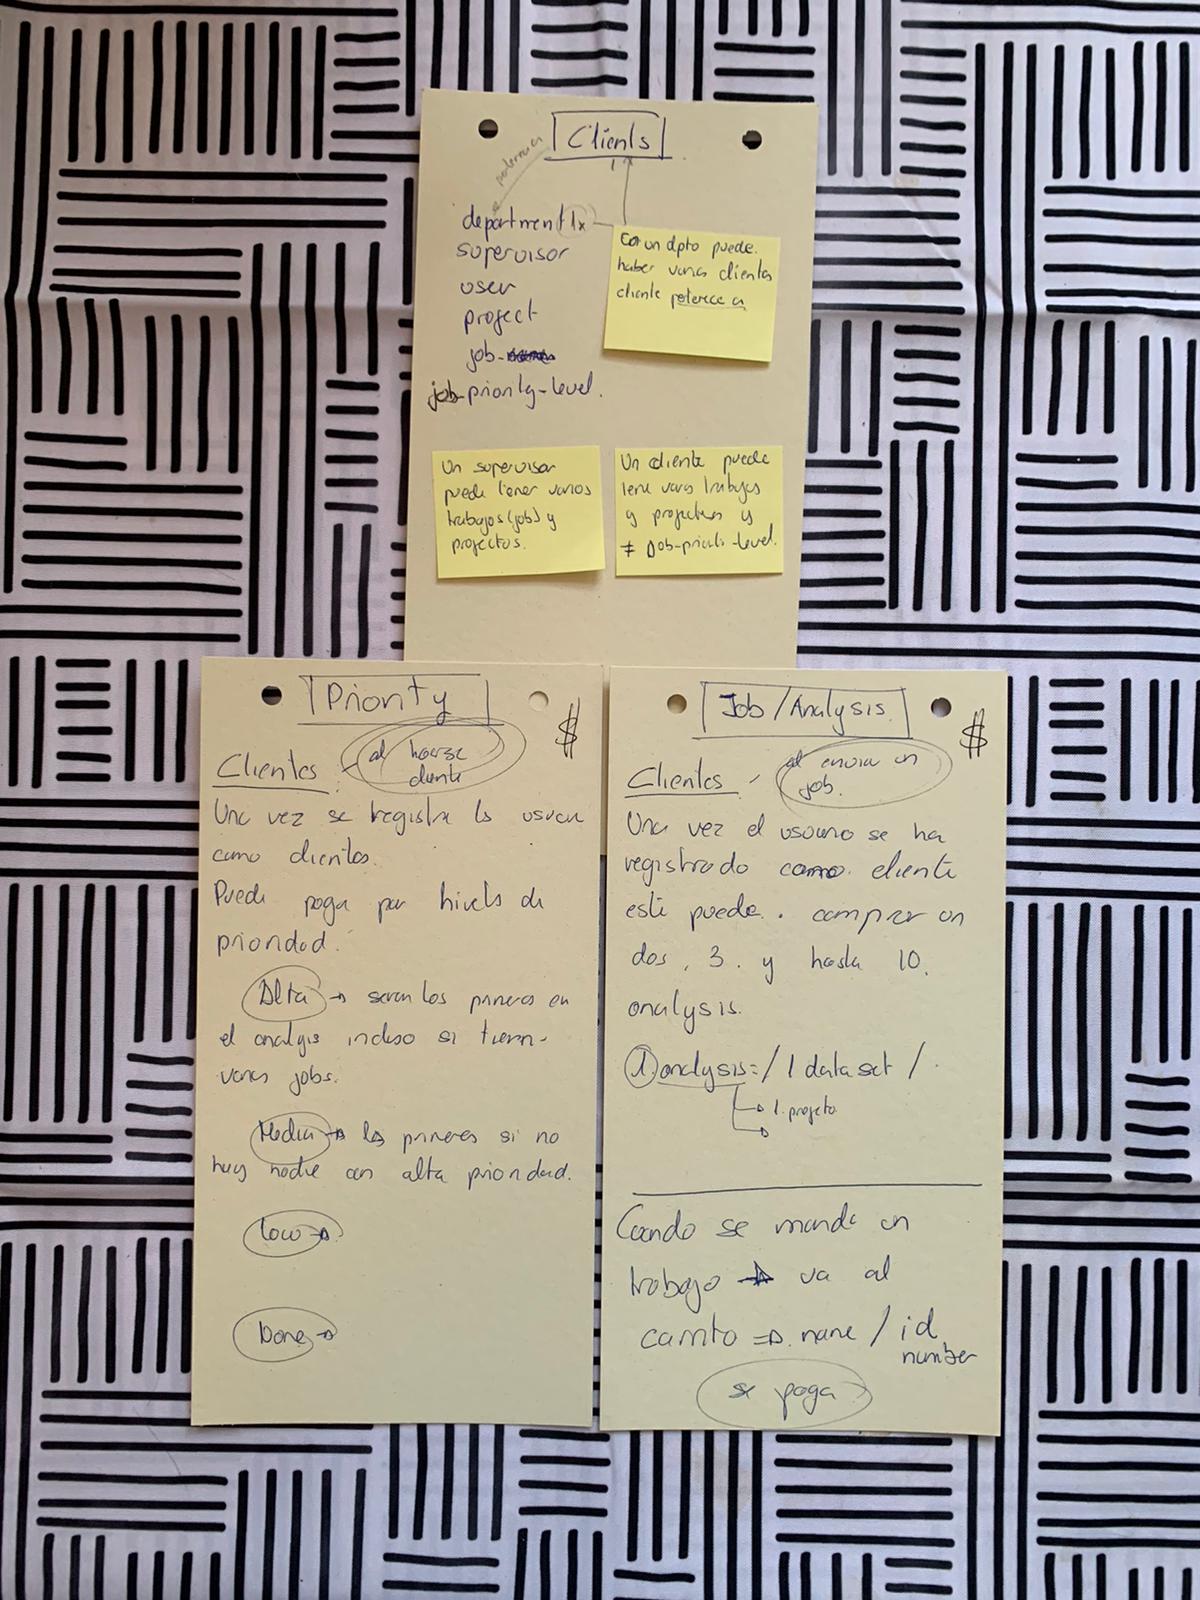 Clients
department 1x
supervisor
user
project
job-
job-priority-level.
un dpto puede
haber varios clientes
cliente peterece a
Un supervisor
puede tener varios
trabajos (job) y
projectos.
Un cliente puede
tene varios trabajos
y projectos y
≠ Job-priority-level.
Priority
$
Clientes - al hacerse
cliente
Una vez se registra ls usuar
como clientes.
Puede paga por nivels de
prioridad.
Alta → seran los primeros en
el analysis incluso si tienen
varios jobs.
Media → ls primeros si no
hay nadie con alta prioridad.
Low →
Done →
Job/Analysis
$
Clientes - al envia un
job.
Una vez el usuario se ha
registrado como cliente
este puede. comprar un
dos, 3. y hasta 10.
analysis.
1 analysis = / 1 data set /
→ 1. projeto
→
Cuando se manda un
trabajo → va al
carrito => name / id
number
se paga